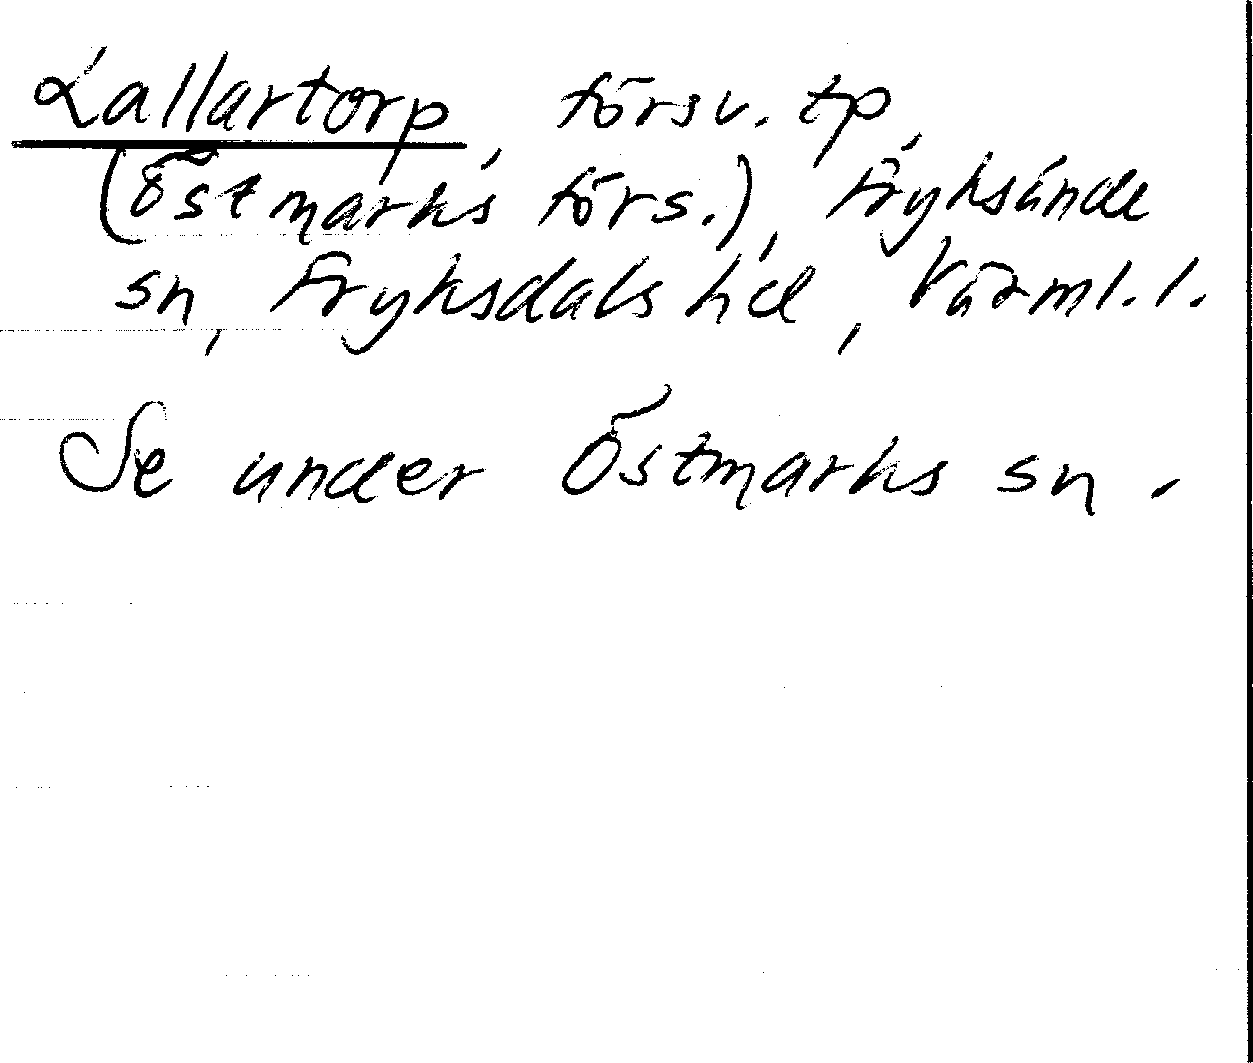 Lallartorp, försv. tp,
(Östmarks förs.), Fryksände
sn, Fryksdals hd, Värml. l.
Se under Östmarks sn.